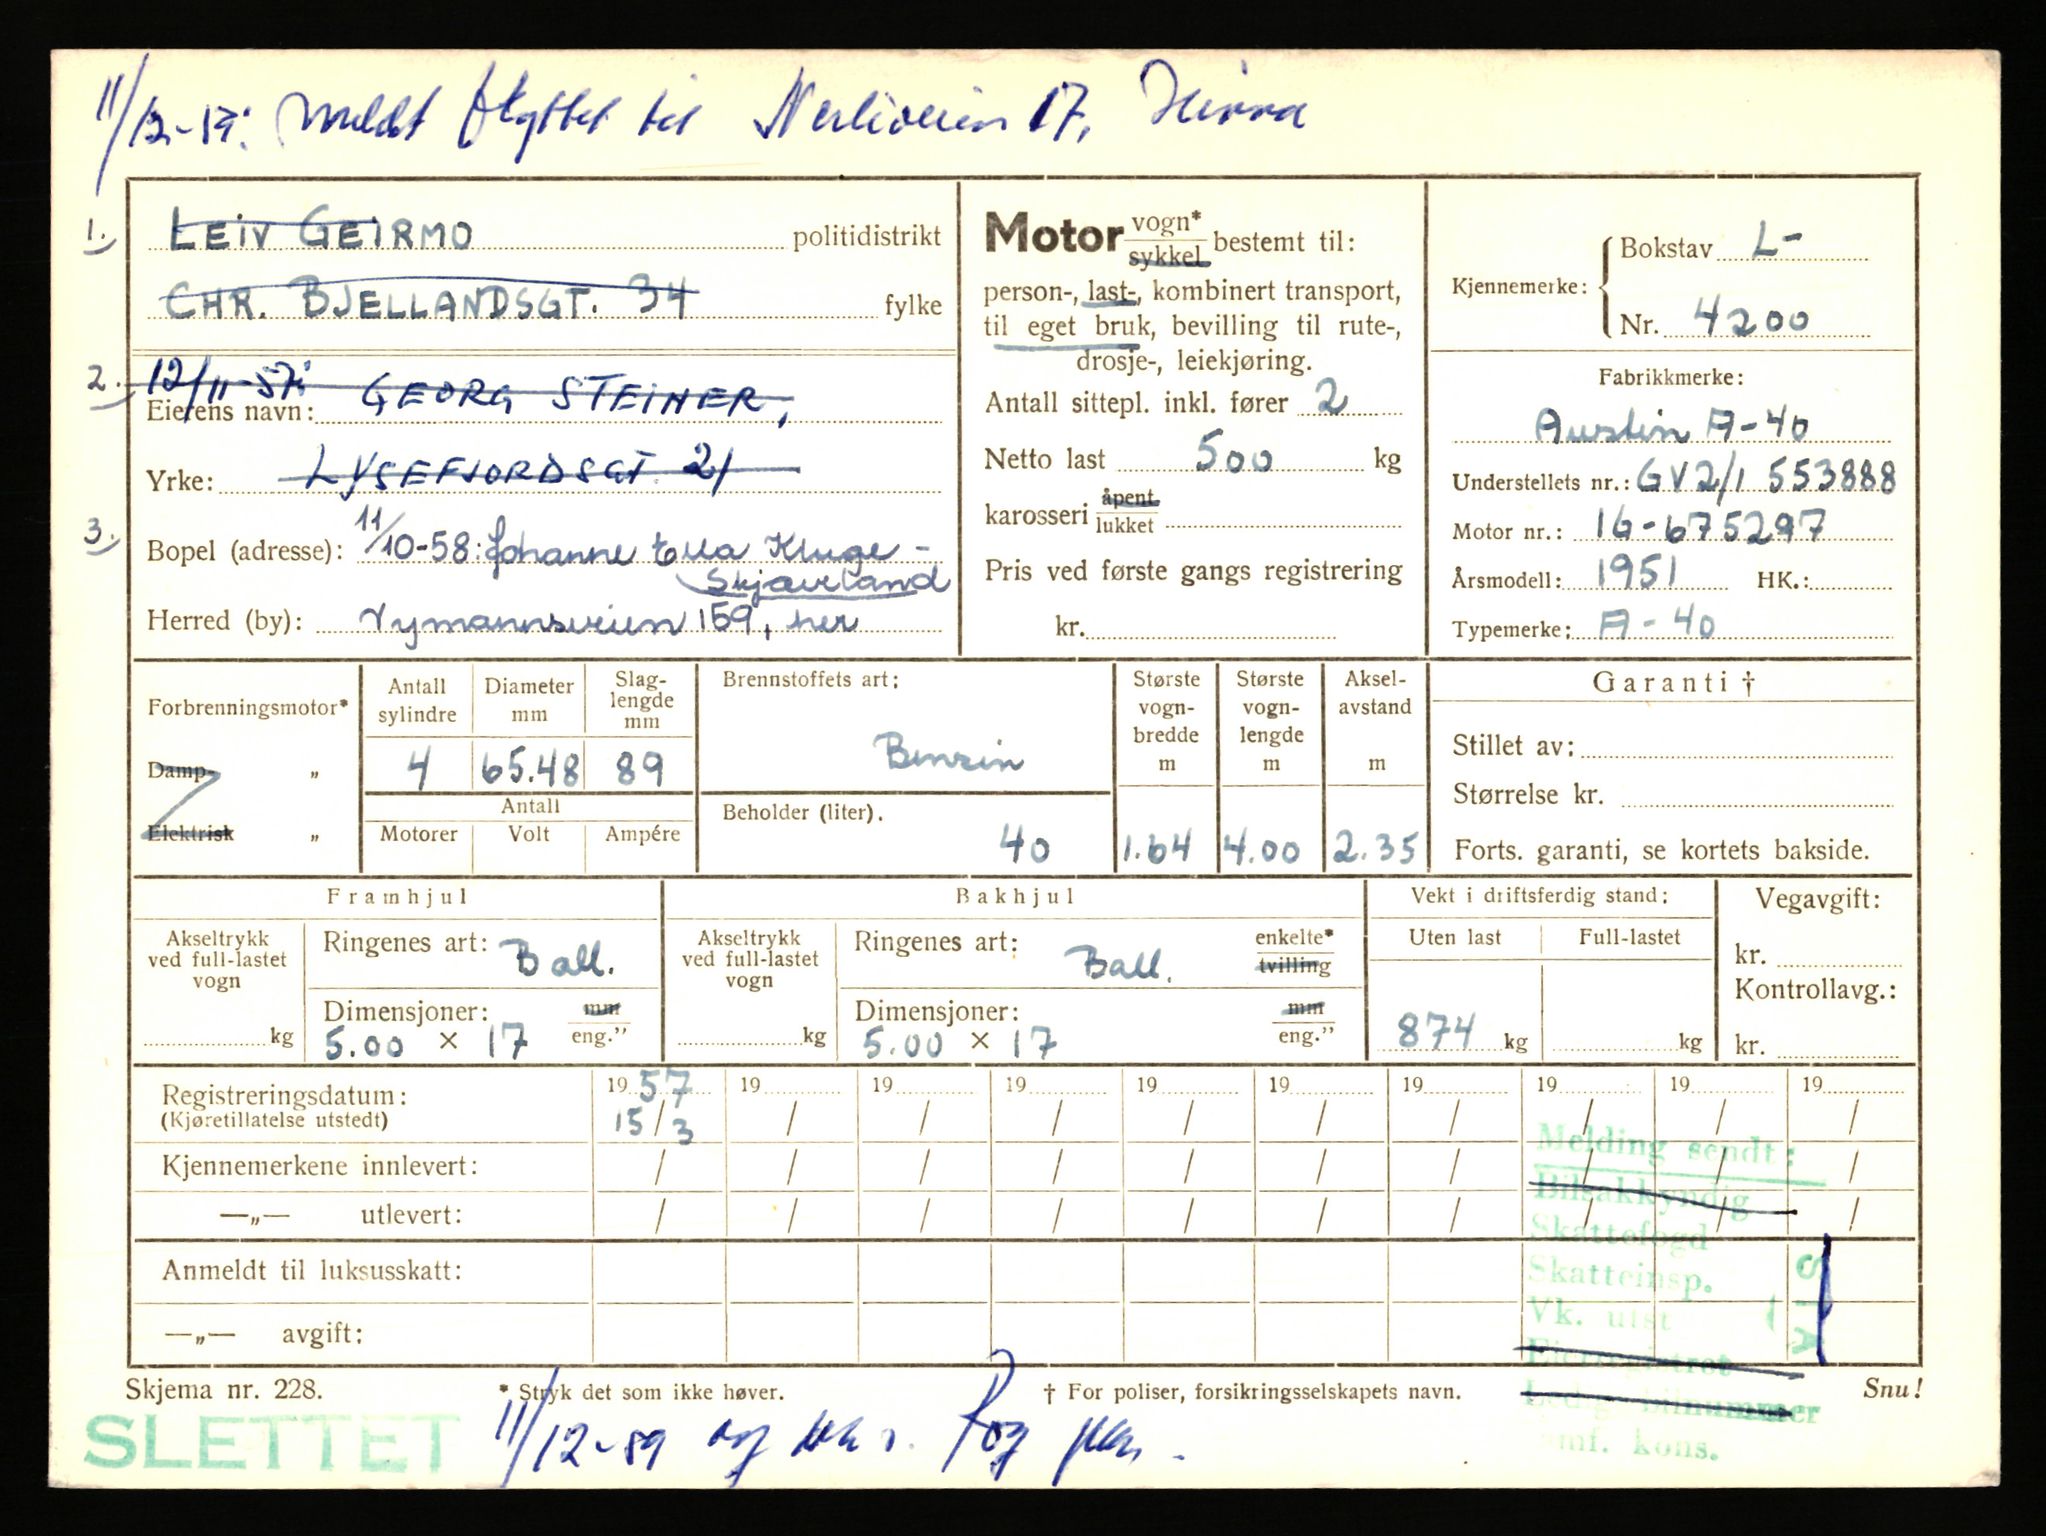 11/12-59: Meldt flyttet til Nerliveien 17, Hinna
1. LEIV GEIRMO politidistrikt
CHR. BJELLANDSGT. 34 fylke
2. 12/11-57: GEORG STEINER,
Eierens navn:
Yrke: LYSEFJORDSGT. 21
3. Bopel (adresse): 11/10-58: Johanne Ella Kluge -
Skjæveland
Herred (by): Nymannsveien 159, her
Motor vogn* sykkel bestemt til:
person-, last-, kombinert transport,
til eget bruk, bevilling til rute-,
drosje-, leiekjøring.
Antall sittepl. inkl. fører 2
Netto last 500 kg
karosseri åpent lukket
Pris ved første gangs registrering
kr.
Kjennemerke: Bokstav L-
Nr. 4200
Fabrikkmerke:
Austin A-40
Understellets nr.: GV2/1 553888
Motor nr.: 1G-675297
Årsmodell: 1951 HK.:
Typemerke: A-40
Forbrenningsmotor*
Damp- „
Elektrisk „
Antall sylindre 4
Diameter mm 65.48
Slag-
lengde
mm 89
Antall
Motorer Volt Ampére
Brennstoffets art:
Benzin
Beholder (liter).
40
Største
vogn-
bredde
m
1.64
Største
vogn-
lengde
m
4.00
Aksel-
avstand
m
2.35
Garanti †
Stillet av:
Størrelse kr.
Forts. garanti, se kortets bakside.
Framhjul
Akseltrykk
ved full-lastet
vogn
kg
Ringenes art: Ball.
Dimensjoner: mm
5.00 × 17 eng.”
Bakhjul
Akseltrykk
ved full-lastet
vogn
kg
Ringenes art: Ball. enkelte*
tvilling
Dimensjoner: mm
5.00 × 17 eng.”
Vekt i driftsferdig stand:
Uten last Full-lastet
874 kg kg
Vegavgift:
kr.
Kontrollavg.:
kr.
Registreringsdatum: 19 57 19 19 19 19 19 19 19 19 19
(Kjøretillatelse utstedt) 15/3 / / / / / / / / /
Kjennemerkene innlevert: / / / / / / / / / /
—„— utlevert: / / / / / / / / / /
Anmeldt til luksusskatt:
—„— avgift:
Melding sendt:
Bilsakkyndig
Skattefogd
Skatteinsp.
Vk. utst
Eierregistret
Ledig bilnummer
mf. kons.
Skjema nr. 228.
* Stryk det som ikke høver.
† For poliser, forsikringsselskapets navn.
Snu!
SLETTET
11/12-59